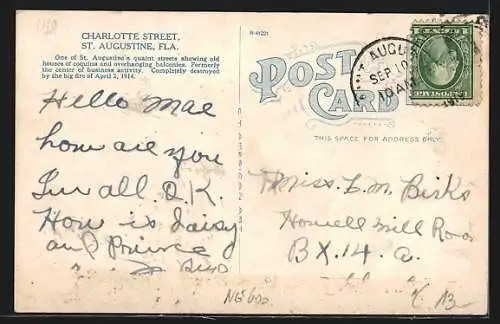 CHARLOTTE STREET,
ST. AUGUSTINE, FLA.
One of St. Augustine's quaint streets showing old
houses of coquina and overhanging balconies. Formerly
the center of business activity. Completely destroyed
by the big fire of April 2, 1914.
Hello Mae
how are you
I'm all O.K.
How is daisy
and Prince
R-41221
POST
CARD
THIS SPACE FOR ADDRESS ONLY
AUGU
SEP 10
10 AM
Miss L. M. Birks
Howell Mill Road
BX. 14. a.